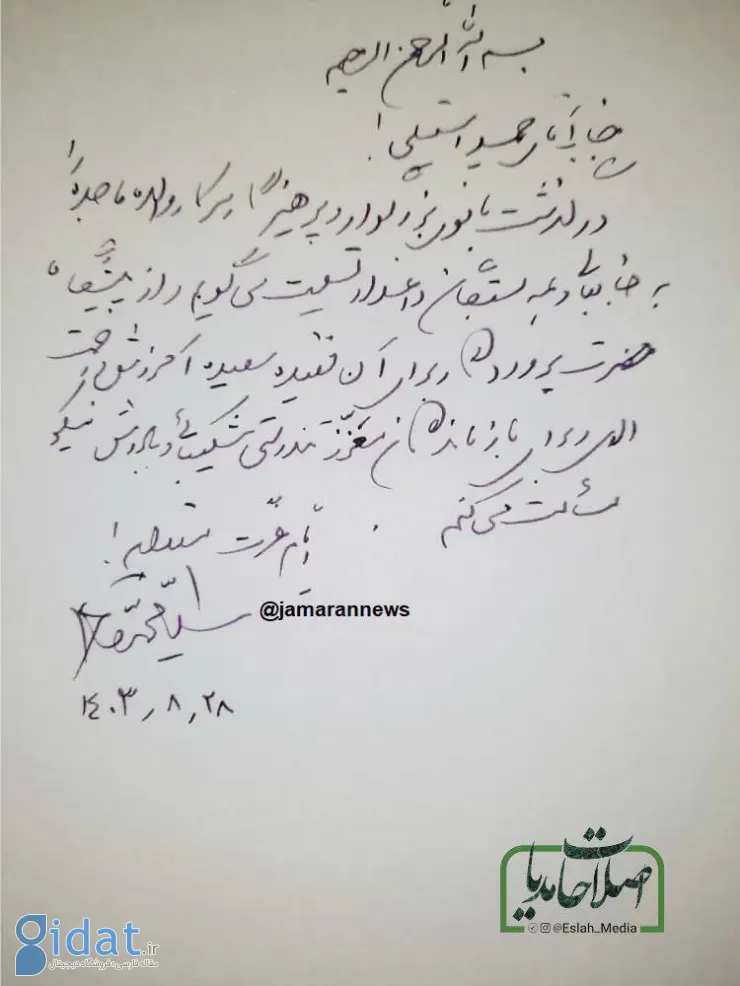 بسم الله الرحمن الرحیم
جناب آقای حمید استیلی!
درگذشت بانوی بزرگوار و پرهیزگار سرکار والده ماجده را
به جنابعالی و همه بستگان داغدار تسلیت می گویم و از پیشگاه
حضرت پروردگار برای آن فقیده سعیده آمرزش و رحمت
الهی و برای بازماندگان معزز تندرستی شکیبائی و پاداش نیکو
مسألت می کنم.
ایام عزت مستدام!
سید محمد خاتمی
@jamarannews
۱۴۰۳٫۸٫۲۸
اصلاحات مدیا
@Eslah_Media
gidat.ir
مقاله فارسی؛ فروشگاه دیجیتال